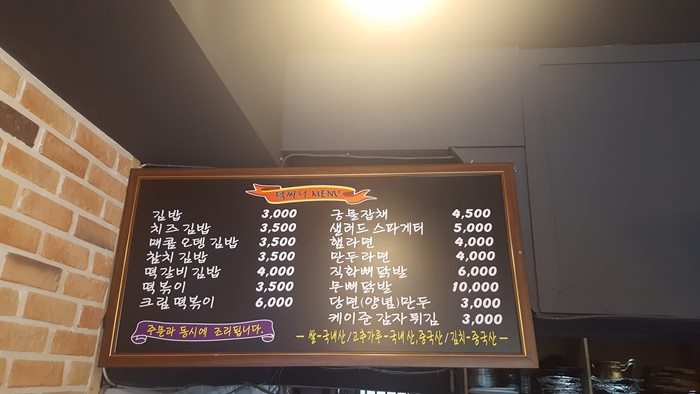 MENU
김밥 3,000
치즈 김밥 3,500
매콤 오뎅 김밥 3,500
참치 김밥 3,500
떡갈비 김밥 4,000
떡볶이 3,500
크림 떡볶이 6,000
주문과 동시에 조리됩니다.
국물잡채 4,500
샐러드 스파게티 5,000
햄라면 4,000
만두라면 4,000
직화뼈닭발 6,000
무뼈닭발 10,000
당면(양념)만두 3,000
케이준 감자 튀김 3,000
- 쌀-국내산/고추가루-국내산,중국산/김치-중국산 -